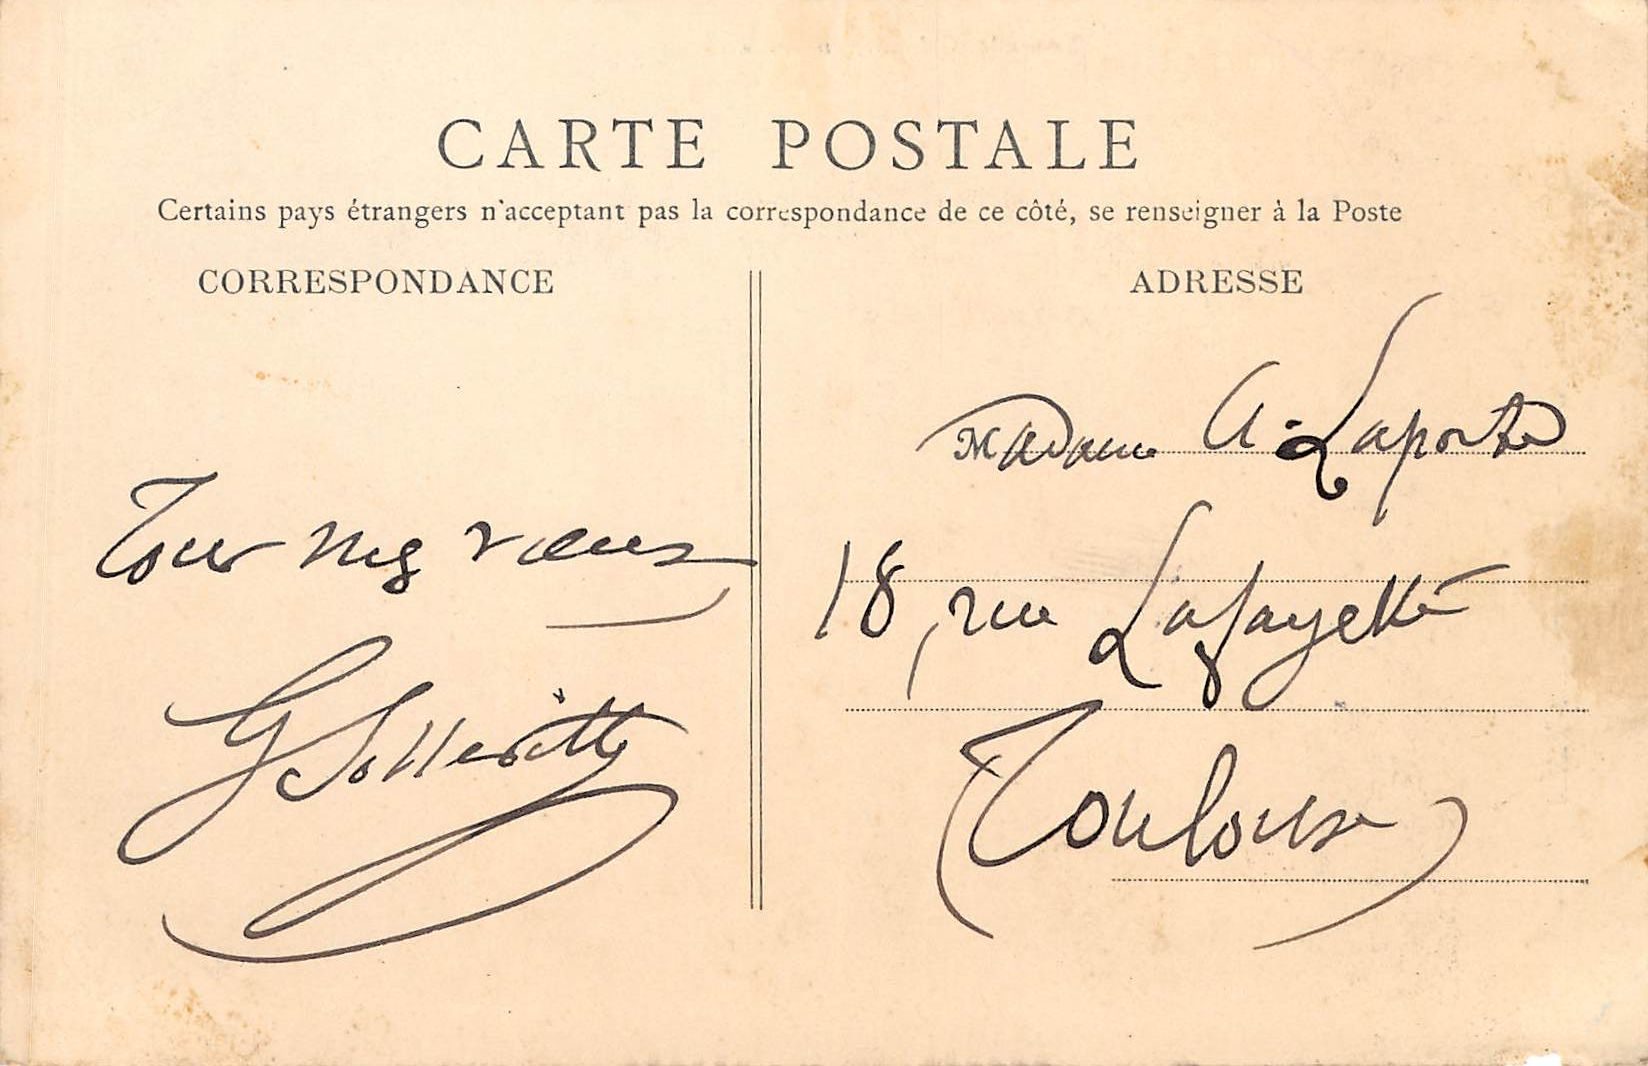 CARTE POSTALE
Certains pays étrangers n'acceptant pas la correspondance de ce côté, se renseigner à la Poste
CORRESPONDANCE
Tous mes vœux
ADRESSE
Madame A. Laporte
18, rue Lafayette
Toulouse